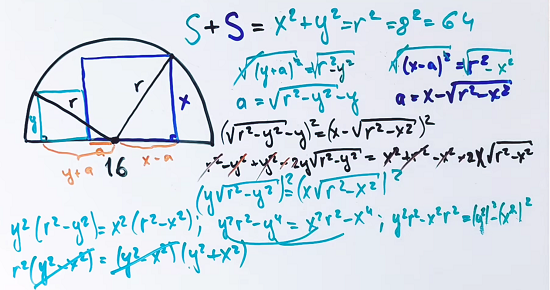 S+S = x²+y²=r²=8²=64
√(y+a)²=√r²-y²
√(x-a)²=√r²-x²
a=√r²-y²-y
a=x-√r²-x²
(√r²-y²-y)²=(x-√r²-x²)²
r²-y²+y²-2y√r²-y² = x²+r²-x²-2x√r²-x²
(y√r²-y²)²=(x√r²-x²)²
y²(r²-y²)=x²(r²-x²); y²r²-y⁴=x²r²-x⁴; y²r²-x²r²=(y²)²-(x²)²
r²(y²-x²)=(y²-x²)(y²+x²)
r
r
y
x
a
y+a
16
x-a